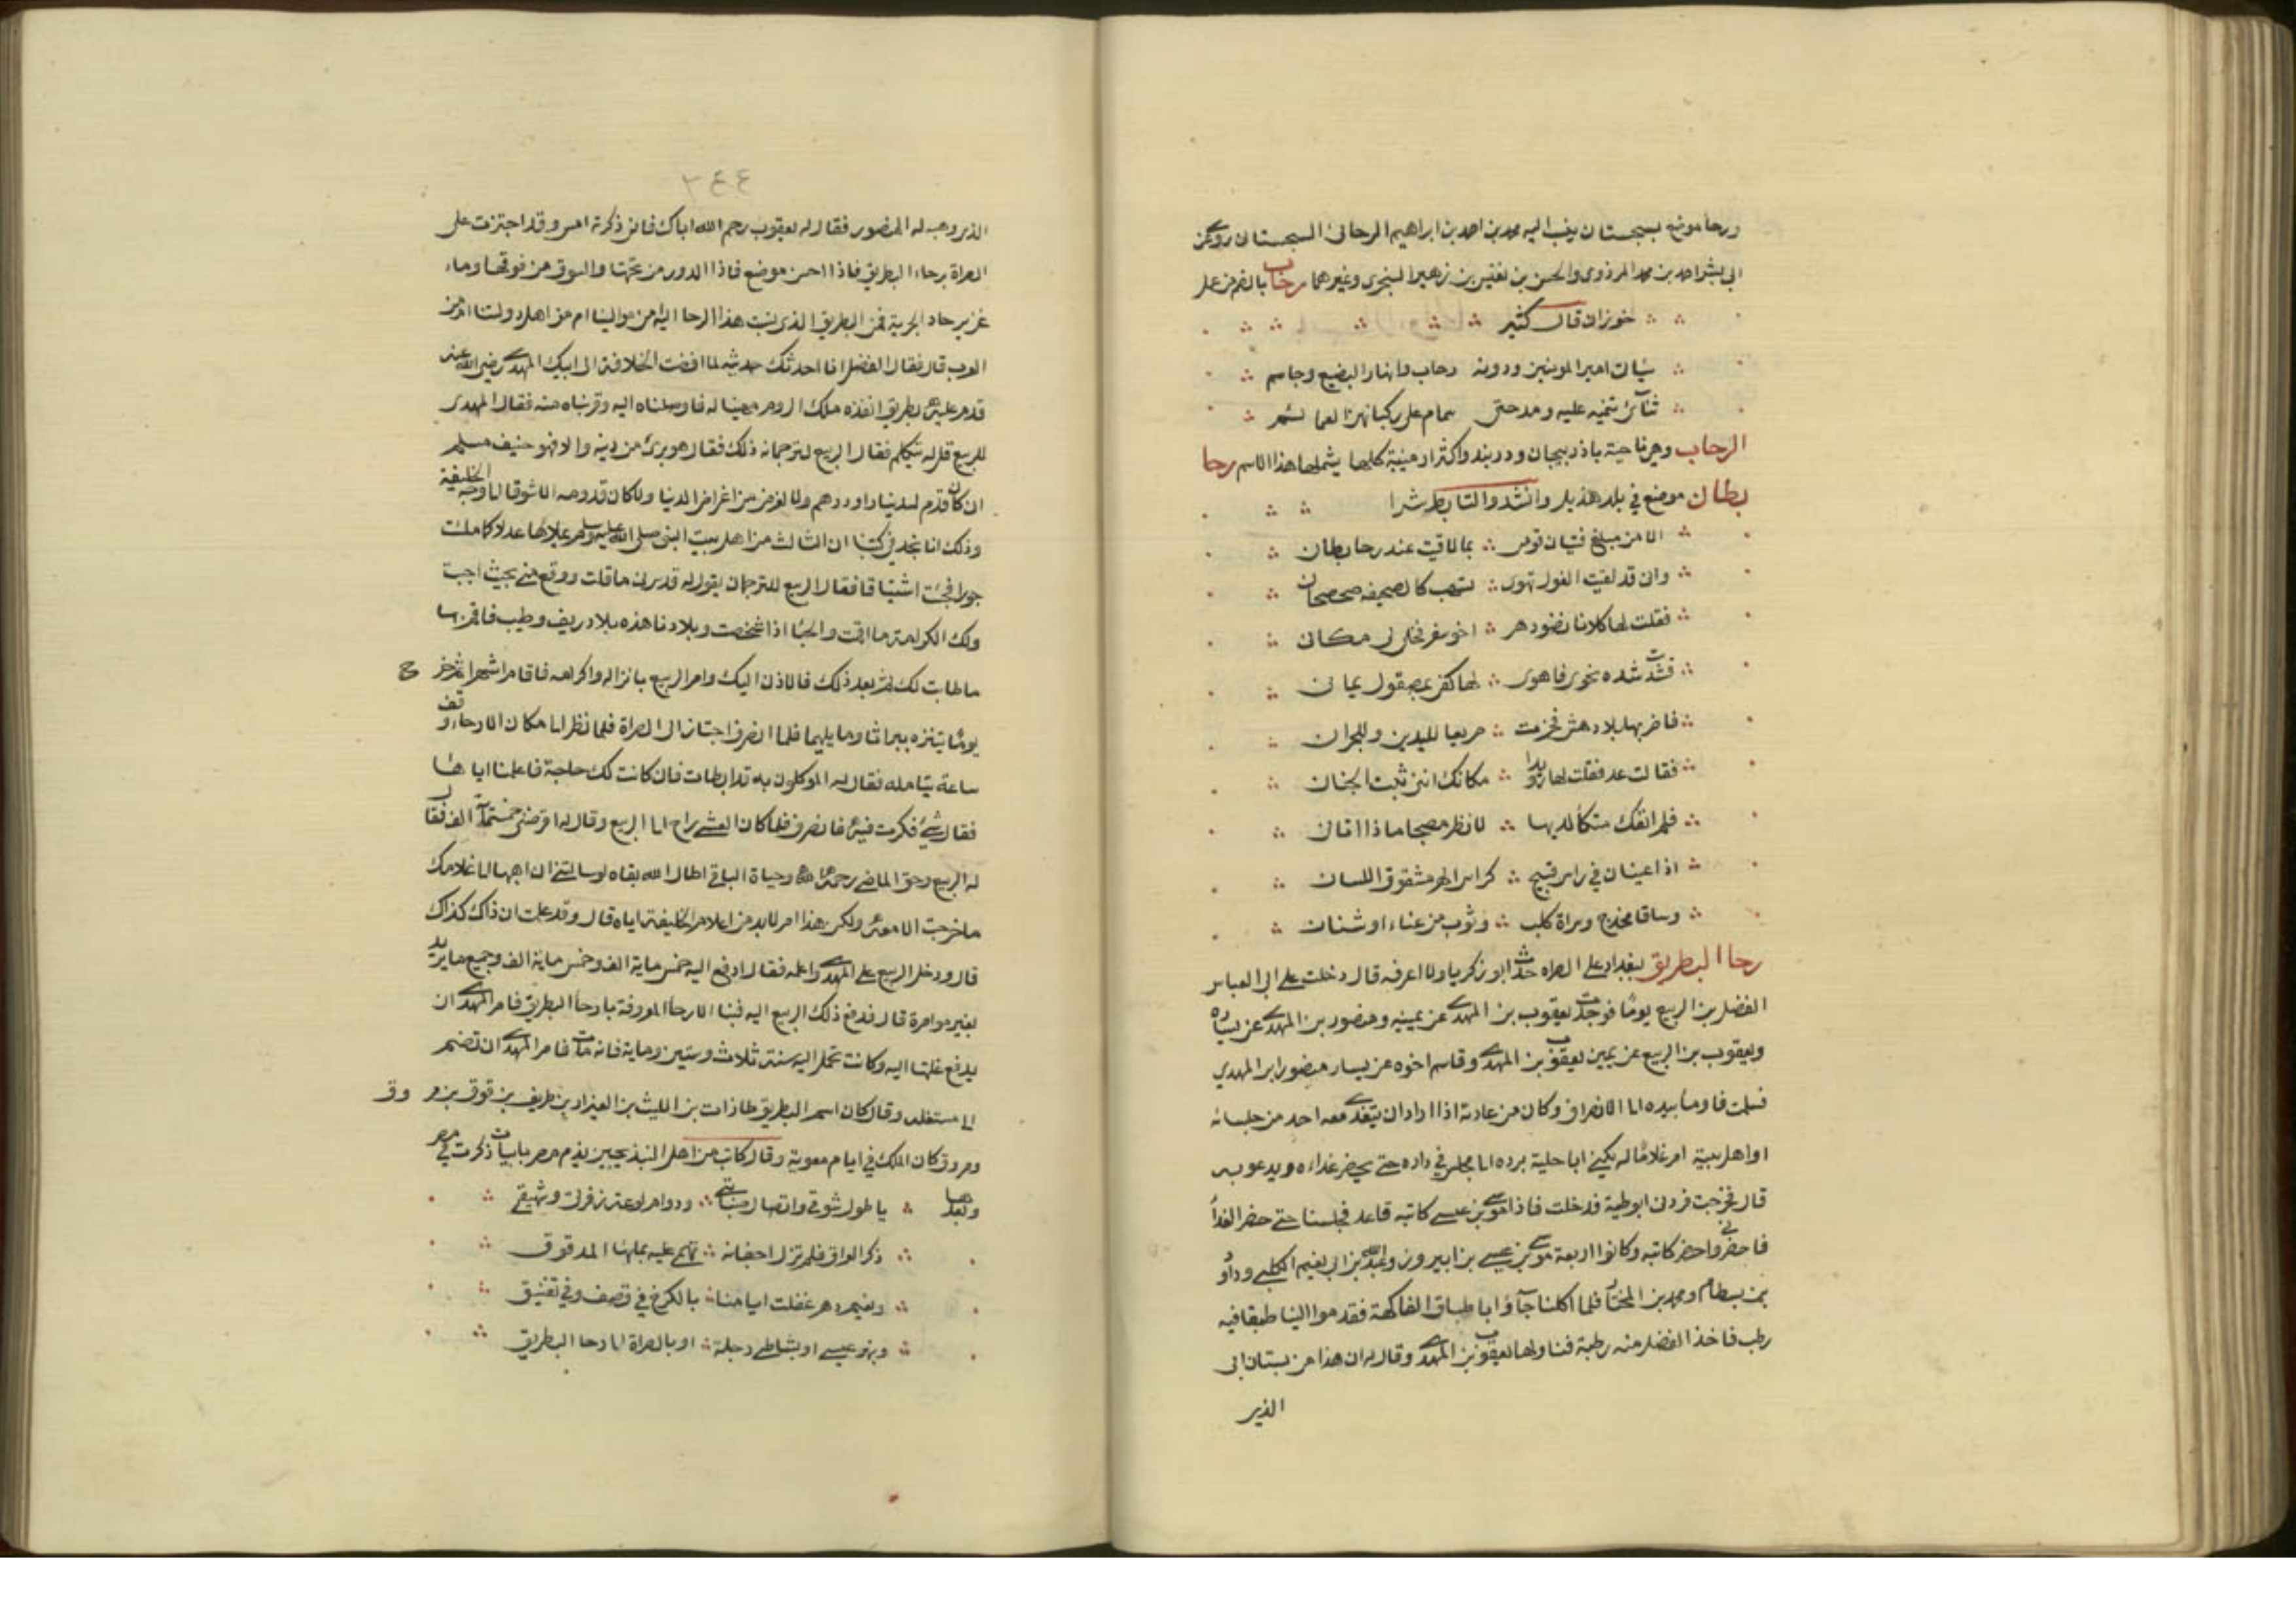 ورحا موضع بسجستان ينسب اليه محمد بن احمد بن ابراهيم الرحائى السجستانى روى عن
ابى بشر احمد بن محمد المروزى والحسن بن نفيس بن زهير السجزى وغيرهما رحاب بالضم من عمل
حوران قال كثير
سيأتى امير المومنين ودونه رحاب وانهار البضيع وجاسم
ثنآئ تنميه عليه ومدحتى سمام على ركبانهن العمائم
الرحاب وهى ناحية باذربيجان ودربند واكثر ارمينية كلها يشملها هذا الاسم رحا
بطان موضع في بلد هذيل وانشدوا لتابط شرا
الا من مبلغ فتيان قومى بما لاقيت عند رحا بطان
وانى قد لقيت الغول تهوى بسهب كالصحيفه صحصحان
فقلت لها كلانا نضو دهر اخو سفر فخلى لى مكانى
فشدت شده نحوى فاهوى لها كفى بمصقول يمانى
فاضربها بلا دهش فخرت صريعا لليدين وللجران
فقالت عد فقلت لها رويدا مكانك اننى ثبت الجنان
فلم انفك متكأ لديها لانظر مصبحا ماذا اتانى
اذا عينان في راس قبيح كراس الهر مشقوق اللسان
وساقا مخدج وسراة كلب وثوب من عباء او شنان
رحا البطريق ببغداد على الصراه حدث ابو زكريا ولا اعرفه قال دخلت على ابى العباس
الفضل بن الربيع يوما فوجدت يعقوب بن المهدى عن يمينه ومنصور بن المهدى عن يساره
ويعقوب بن الربيع عن يمين يعقوب بن المهدى وقاسم اخوه عن يسار منصور ابن المهدي
فسلمت فاوما بيده الى الانصراف وكان من عادته اذا اراد ان يتغدى معه احد من جلسائه
او اهل بيته امر غلاما له يكنى ابا حلية برده الى مجلس في داره حتى يحضر غداءه ويدعو به
قال فخرجت فردنى ابو حلية فدخلت فاذا موسى بن عيسى كاتبه قاعد فجلسنا حتى حضر الغدآ
فاحضرنى واحضر كاتبه وكانوا اربعة موسى بن عيسى بن ابيروز وعبد الله بن ابى نعيم الكلبي وداود
بن بسطام ومحمد بن المختار فلما اكلنا جآؤا باطباق الفاكهة فقدموا الينا طبقا فيه
رطب فاخذ الفضل منه رطبة فناولها ليعقوب بن المهدى وقال له ان هذا من بستان ابى
الذى
٣٤٤
الذى وهبه له المنصور فقال له يعقوب رحم الله اباك فانى ذكرته امس وقد اجتزت على
الصراة برحاء البطريق فاذا احسن موضع فاذا الدور من تحتها والسوق من فوقها وماء
غزير حاد الجرية فمن البطريق الذى نسبت هذا الرحا اليه امن موالينا ام من اهل دولتنا ام من
العرب قال فقال الفضل انا احدثك حديثه لما افضت الخلافة الى ابيك المهدى رضى الله عنه
قدم عليه بطريق انفذه ملك الروم مهنيا له فاوصلناه اليه وقربناه منه فقال المهدى
للربيع قل له يتكلم فقال الربيع لترجمانه ذلك فقال هو برئ من دينه والا فهو حنيف مسلم
ان كان قدم لدينار او درهم ولا لغرض من اغراض الدنيا ولا كان قدومه الا شوقا الى وجه الخليفة
وذلك انا نجد في كتبنا ان الثالث من اهل بيت النبى صلى الله عليه وسلم يملاها عدلا كما ملئت
جورا فجئت اشتياقا فقال الربيع للترجمان يقول له قد سرنى ما قلت ووقع منى بحيث احببت
ولك الكرامة ما اقمت والحبا اذا شخصت وبلادنا هذه بلاد ريف وطيب فاقم بها
ما طابت لك ثم بعد ذلك فالاذن اليك وامر الربيع بانزاله واكرامه فاقام اشهرا ثم خرج
يوما يتنزه ببراثا وما يليها فلما انصرف اجتاز الى الصراة فلما نظر الى مكان الارحاء وقف
ساعة يتامله فقال له الموكلون به قد ابطات فان كانت لك حاجة فاعلمنا اياها
فقال شئ فكرت فيه فانصرف فلما كان العشى راح الى الربيع وقال له اقرضنى خمسمآئة الف فقال
له الربيع وحق الماضي رحمه الله وحياة الباقى اطال الله بقاه لو سالتنى ان اهبها الى غلامك
ما خرجت الا معه ولكن هذا امر لابد من اعلام الخليفة اياه قال وقد علمت ان ذاك كذاك
قال ودخل الربيع على المهدى واعلمه فقال ادفع اليه خمس ماية الف وخمس ماية الف وجميع ما يريد
بغير موامرة قال فدفع ذلك الربيع اليه فبنا الارحأ المعروفة بارحأ البطريق فامر المهدى ان
يدفع غلتها اليه وكانت تحمل اليه سنة ثلاث وستين وماية فانه مات فامر المهدى ان تضم
الى مستغله وقال كان اسم البطريق طازات بن الليث بن العيزار بن طريف بن قوق بن مروق
ومروق كان الملك في ايام معوية وقال كاتب من اهل البندنيجين يذم مصر بابيات ذكرت في مصر
وبعدها يا طول شوقى واتصال صبابتى ودوام لوعة زفرتى وشهيقى
ذكر العراق فلم تزل اجفانه تهمى عليه بمائها المدفوق
ونعيم دهر غفلت ايامنا بالكرخ في قصف وفي تفنيق
وبنهر عيسى او بشاطى دجلة او بالصراة الى رحا البطريق